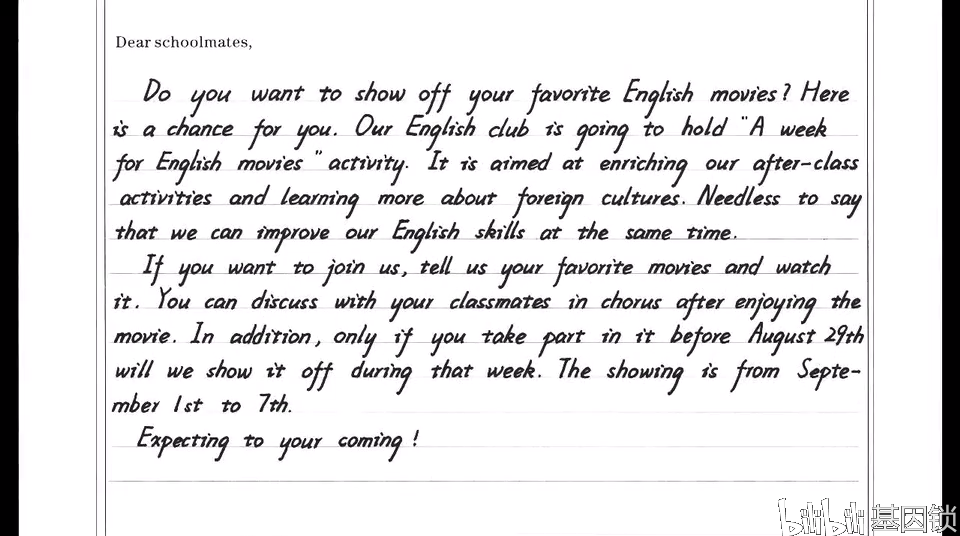 Dear schoolmates,
Do you want to show off your favorite English movies? Here
is a chance for you. Our English club is going to hold "A week
for English movies" activity. It is aimed at enriching our after-class
activities and learning more about foreign cultures. Needless to say
that we can improve our English skills at the same time.
If you want to join us, tell us your favorite movies and watch
it. You can discuss with your classmates in chorus after enjoying the
movie. In addition, only if you take part in it before August 29th
will we show it off during that week. The showing is from Septe-
mber 1st to 7th.
Expecting to your coming!
bilibili 基因锁